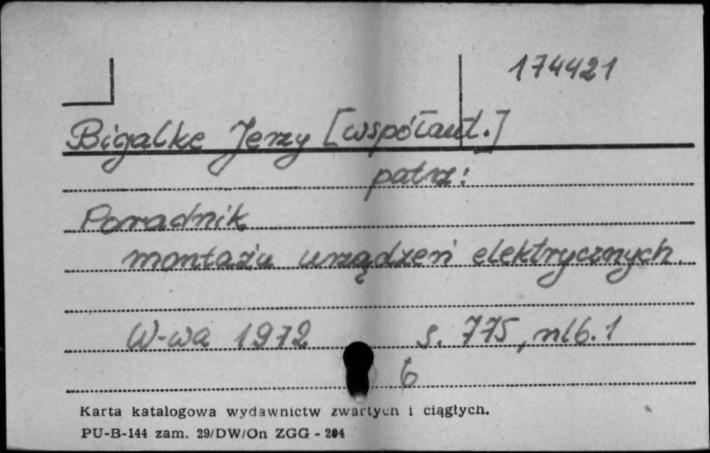 174421
Bigalke Jerzy [współaut.]
patrz:
Poradnik
montażu urządzeń elektrycznych.
W-wa 1972 s. 775, nlb. 1
6
Karta katalogowa wydawnictw zwartych i ciągłych.
PU-B-144 zam. 29/DW/On ZGG - 204